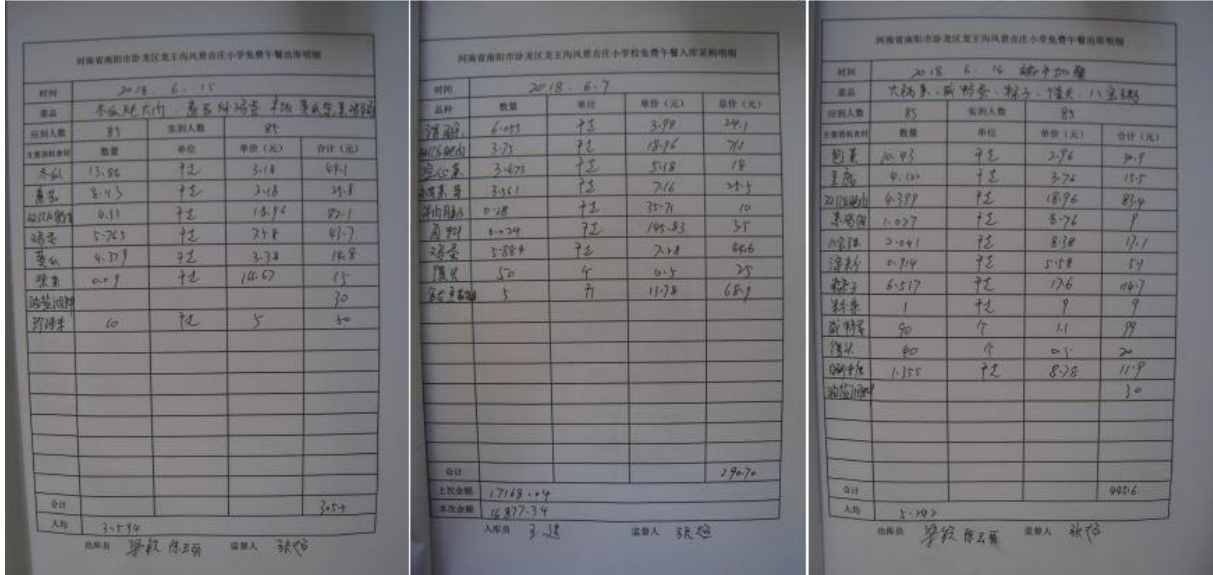 河南省南阳市卧龙区龙王沟风景吉庄小学免费午餐出库明细
时间 2018. 6. 15
菜品
应到人数 85 实到人数 85
主要消耗食材 数量 单位 单价(元) 合计(元)
冬瓜 13.86 千克 3.18 44.1
番茄 8.13 千克 3.18 25.8
4.33 千克 18.96 82.1
鸡蛋 5.763 千克 7.58 43.7
黄瓜 4.379 千克 3.38 14.8
0.09 千克 166.67 15
油盐调料 30
10 千克 5 50
合计 305.5
人均 3.594
出库员 陈玉丽 监督人
河南省南阳市卧龙区龙王沟风景吉庄小学校免费午餐入库采购明细
时间 2018. 6. 7
品种 数量 单位 单价(元) 总价(元)
6.055 千克 3.98 24.1
3.75 千克 18.96 71.1
空心菜 3.475 千克 5.18 18
3.561 千克 7.16 25.5
0.28 千克 35.71 10
0.024 千克 145.83 3.5
鸡蛋 5.884 千克 7.58 44.6
馒头 50 个 0.5 25
5 13.78 68.9
合计 290.70
上次余额 17168.04
本次余额 16877.34
入库员 监督人
河南省南阳市卧龙区龙王沟风景吉庄小学免费午餐出库明细
时间 2018. 6. 14 端午加餐
菜品 大锅菜、咸鸭蛋、粽子、馒头、八宝粥
应到人数 85 实到人数 85
主要消耗食材 数量 单位 单价(元) 合计(元)
包菜 10.43 千克 2.96 30.9
豆腐 4.122 千克 3.76 15.5
4.399 千克 18.96 83.4
1.027 千克 8.76 9
2.041 千克 8.38 17.1
0.914 千克 5.58 5.1
粽子 6.517 千克 17.6 114.7
1 千克 9 9
咸鸭蛋 90 个 1.1 99
馒头 40 个 0.5 20
1.355 千克 8.78 11.9
油盐调料 30
合计 445.6
人均 5.242
出库员 陈玉丽 监督人